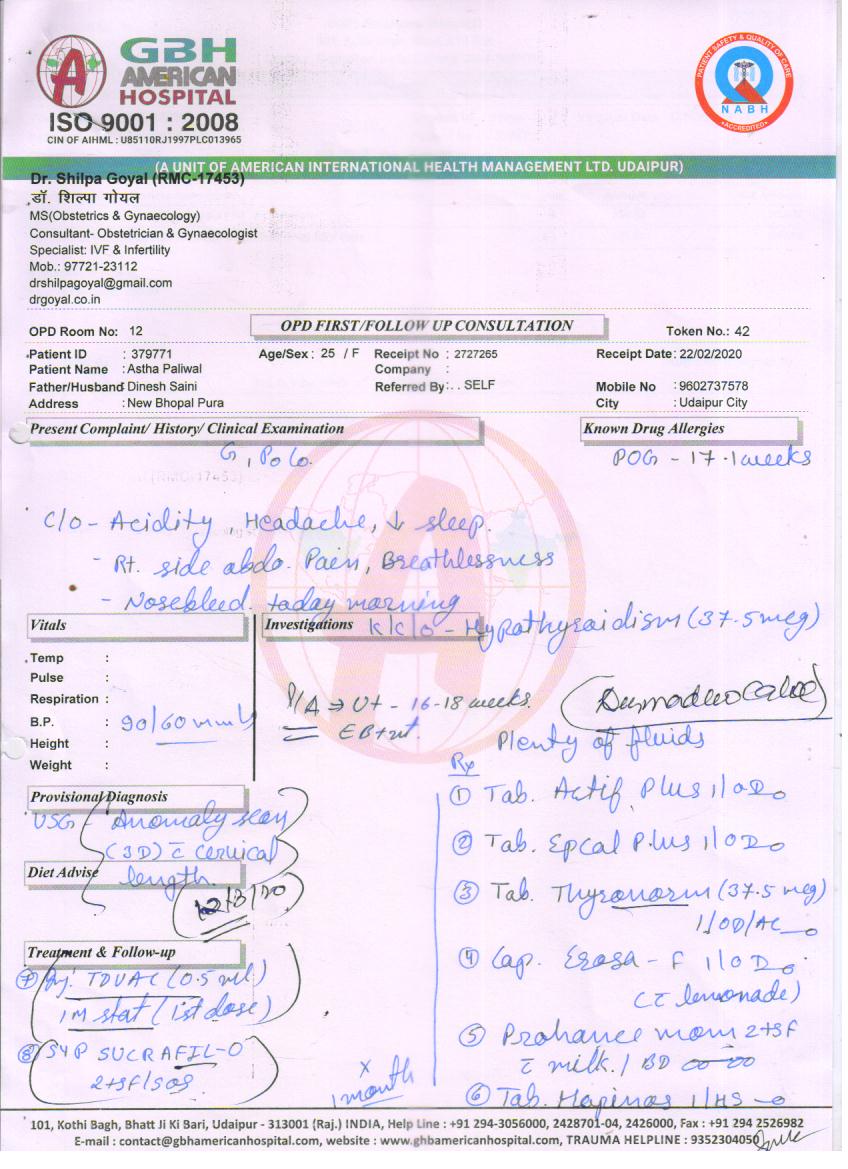 GBH
AMERICAN
HOSPITAL
ISO 9001 : 2008
CIN OF AIHML : U85110RJ1997PLC013965
PATIENT SAFETY & QUALITY OF CARE
NABH
ACCREDITED
(A UNIT OF AMERICAN INTERNATIONAL HEALTH MANAGEMENT LTD. UDAIPUR)
Dr. Shilpa Goyal (RMC-17453)
डॉ. शिल्पा गोयल
MS(Obstetrics & Gynaecology)
Consultant- Obstetrician & Gynaecologist
Specialist: IVF & Infertility
Mob.: 97721-23112
drshilpagoyal@gmail.com
drgoyal.co.in
OPD Room No: 12 OPD FIRST/FOLLOW UP CONSULTATION Token No.: 42
Patient ID : 379771 Age/Sex : 25 / F Receipt No : 2727265 Receipt Date: 22/02/2020
Patient Name : Astha Paliwal Company :
Father/Husband: Dinesh Saini Referred By: . . SELF Mobile No : 9602737578
Address : New Bhopal Pura City : Udaipur City
Present Complaint/ History/ Clinical Examination Known Drug Allergies
G1P0L0. POG - 17.1 weeks
C/O - Acidity, Headache, ↓ sleep.
- Rt. side abdo. Pain, Breathlessness
- Nosebleed today morning
Vitals Investigations K/K/O - Hypothyroidism (37.5 mcg)
Temp :
Pulse :
Respiration :
B.P. : 90/60 mmHg
Height :
Weight :
P/A ⇒ Ut - 16-18 weeks.
Plenty of fluids
Rx
① Tab. Actif Plus 1/OD
② Tab. Epcal Plus 1/OD
③ Tab. Thyronorm (37.5 mcg)
1/OD/AC
④ Cap. Erosa - F 1/OD
(c̄ lemonade)
⑤ Prohance mom 2tsf
c̄ milk / BD
⑥ Tab. 1/HS
Provisional Diagnosis
USG - Anomaly scan
(3D) c̄ cervical
Diet Advise length.
12/3/20
Treatment & Follow-up
⑦ Inj. TDVAC (0.5 ml)
IM stat (1st dose)
⑧ SYP SUCRAFIL-O
2tsf/SOS
x
1 month
101, Kothi Bagh, Bhatt Ji Ki Bari, Udaipur - 313001 (Raj.) INDIA, Help Line : +91 294-3056000, 2428701-04, 2426000, Fax : +91 294 2526982
E-mail : contact@gbhamericanhospital.com, website : www.ghbamericanhospital.com, TRAUMA HELPLINE : 9352304050